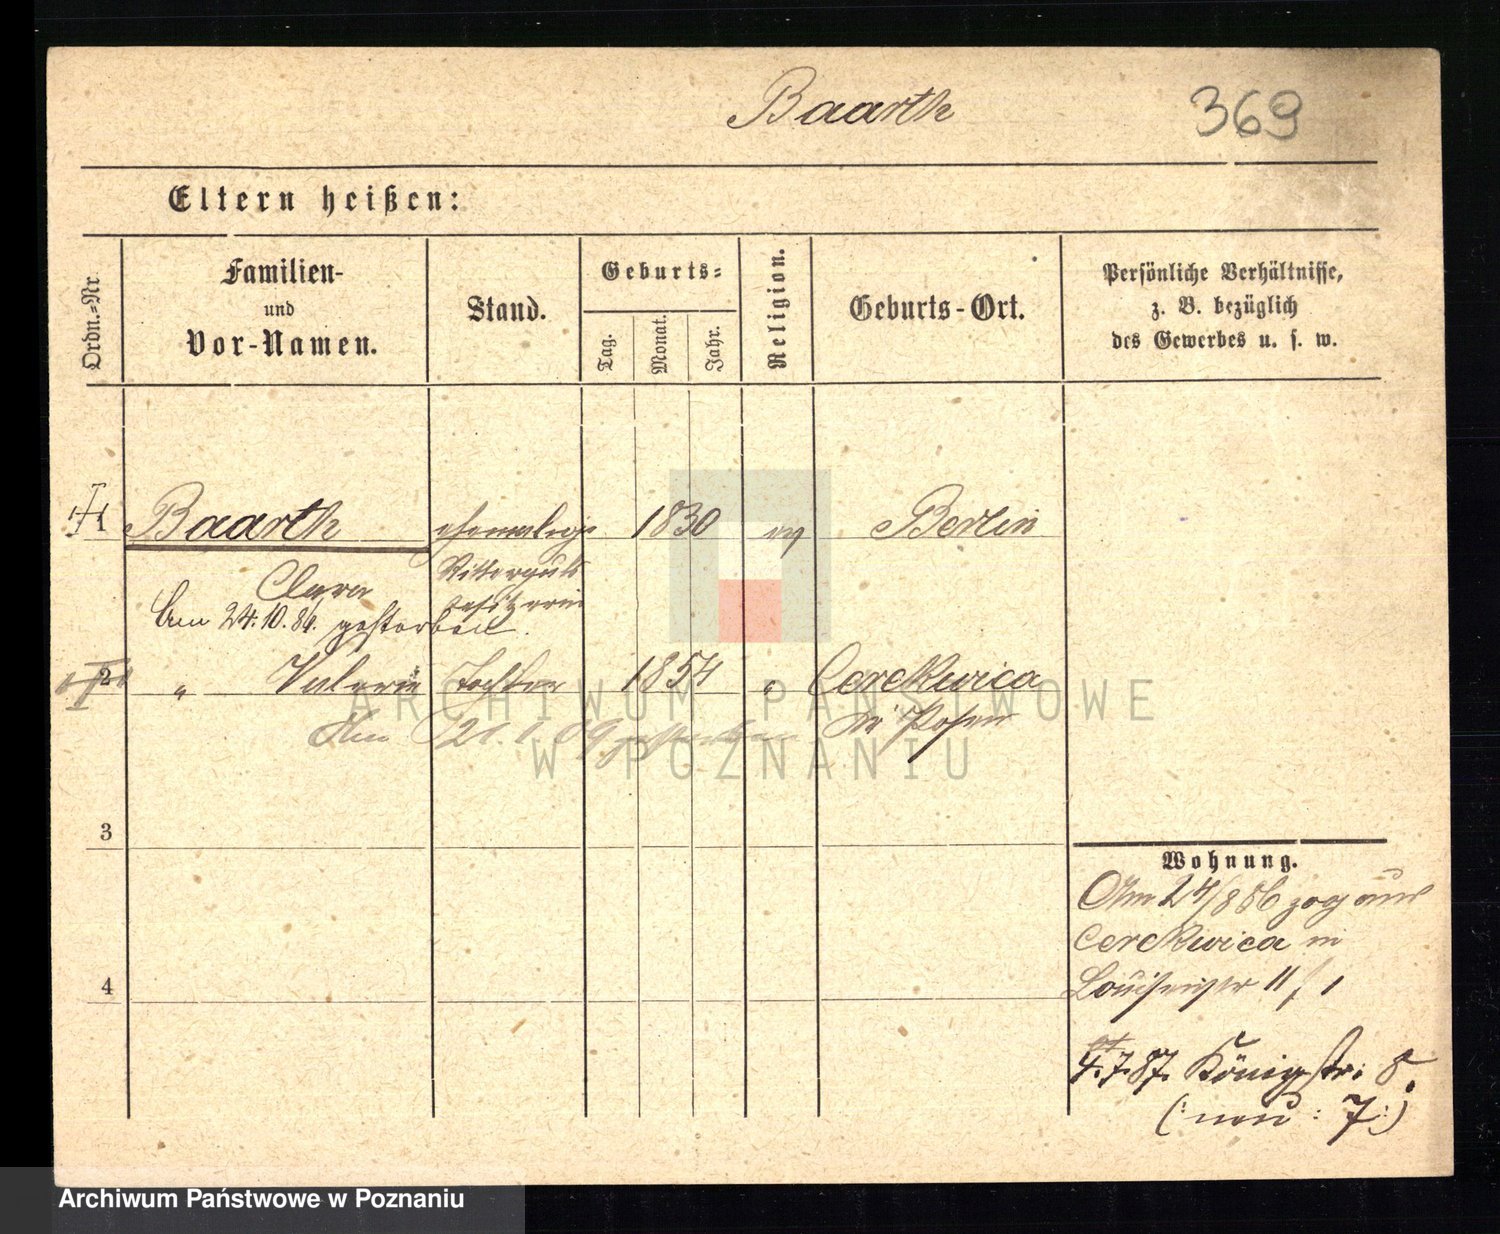 Baarth 369
Eltern heißen:
Ordn.-Nr.
Familien-
und
Vor-Namen.
Stand.
Geburts-
Tag.
Monat.
Jahr.
Religion.
Geburts-Ort.
Persönliche Verhältnisse,
z. B. bezüglich
des Gewerbes u. s. w.
1 Baarth ehemalige 1830 ev Berlin
Clara Ritterguts
besitzerin
Am 24.10.84. gestorben.
2 " Valerie Tochter 1854 " Cerekwica
Am gestorben Kr Posen
3
4
Wohnung.
Am 24/8 86 zog aus
Cerekwica in
Louisenstr 11 / 1
4.7.87. Königstr: 8.
(: neu: 7:)
ARCHIWUM PAŃSTWOWE
W POZNANIU
Archiwum Państwowe w Poznaniu